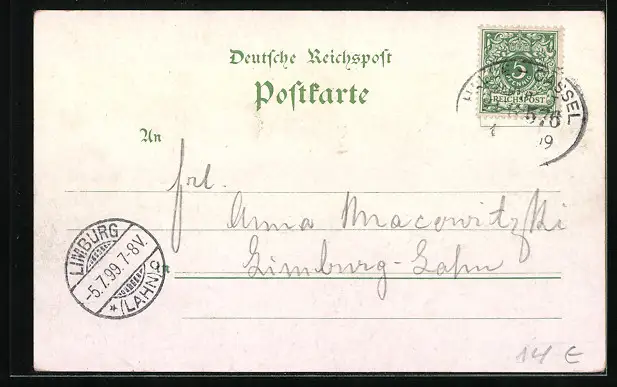 Deutsche Reichspost
Postkarte
5
REICHSPOST
CASSEL
576
An
frl.
Anna Macowitzki
in
Limburg-Lahn
LIMBURG
-5.7.99.7-8V.
* (LAHN)
14 €